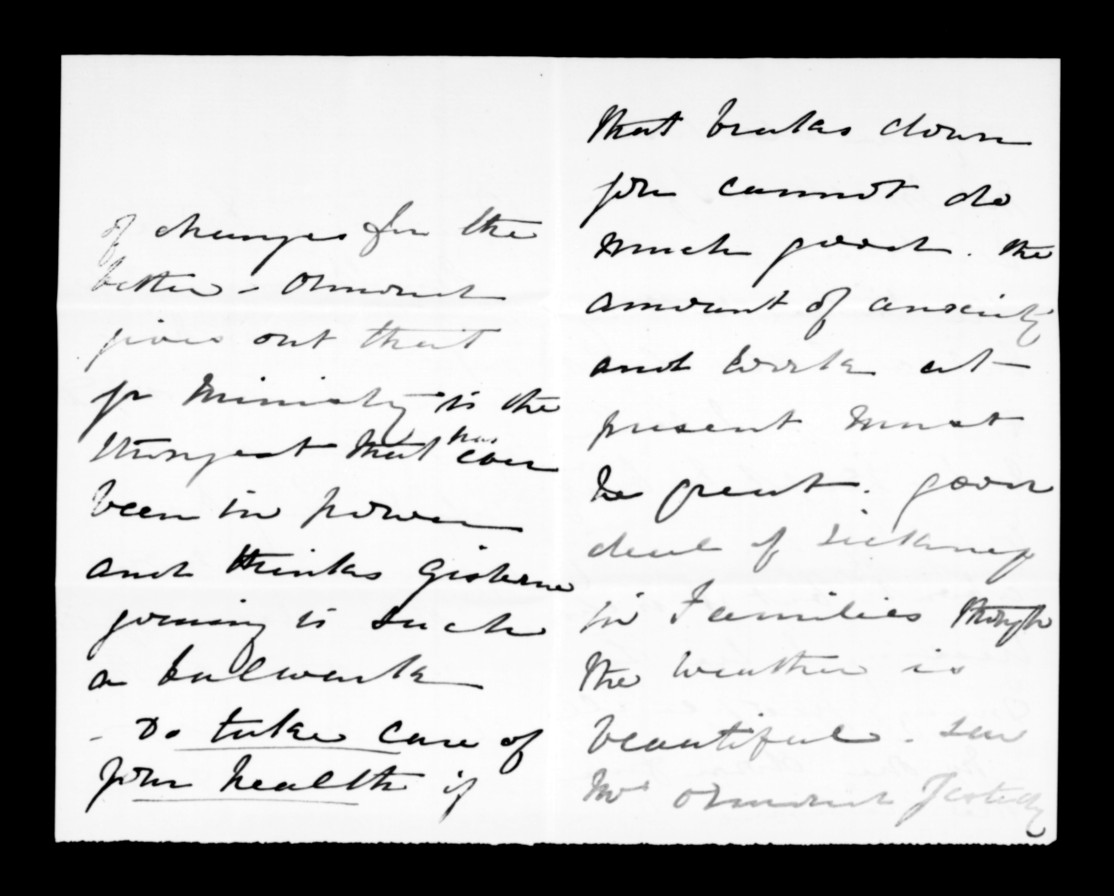 of changes for the
better - Ormond
gives out that
yr Ministry is the
strongest that has ever
been in power
and thinks Gisborne
joining is such
a bulwark
- Do take care of
your health if
that breaks down
you cannot do
much good. the
amount of anxiety
and work at
present must
be great. good
deal of sickness
in Families though
the weather is
beautiful. saw
Mrs Ormond